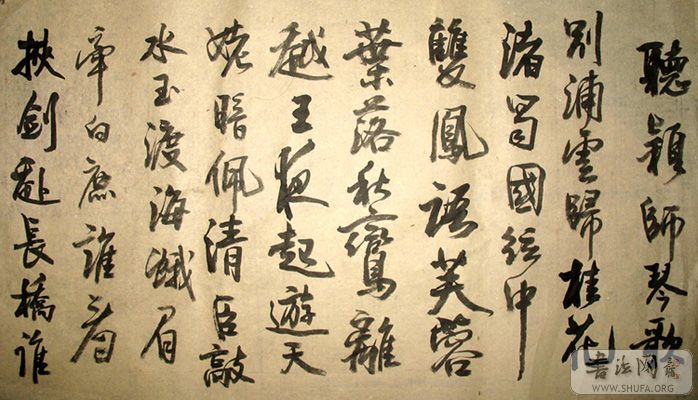 聽穎師琴歌
別浦雲歸桂花
渚蜀國絃中
雙鳳語芙蓉
葉落秋鸞離
越王夜起遊天
姥暗佩清臣敲
水玉渡海蛾眉
牽白鹿誰看
挾劍赴長橋誰
書法网
WWW.SHUFA.ORG